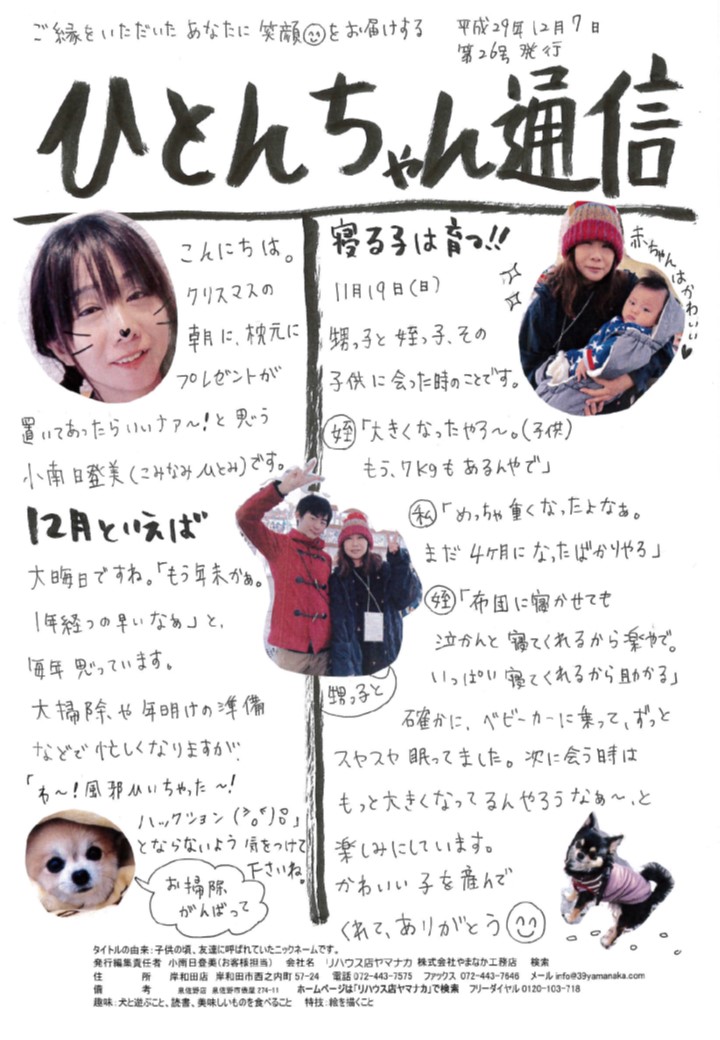 ご縁をいただいた あなたに 笑顔をお届けする
平成29年12月7日
第26号 発行
ひとんちゃん通信
こんにちは。
クリスマスの
朝に、枕元に
プレゼントが
置いてあったらいいナァ〜!と思う
小南日登美(こみなみひとみ)です。
12月といえば
大晦日ですね。「もう年末かぁ。
1年経つの早いなぁ」と、
毎年思っています。
大掃除や年明けの準備
などで忙しくなりますが、
「わ〜!風邪ひいちゃった〜!
ハックション
とならないよう気をつけて
下さいね。
お掃除
がんばって
寝る子は育つ!!
赤ちゃんはかわいい♥
11月19日(日)
甥っ子と姪っ子、その
子供に会った時のことです。
姪「大きくなったやろ〜。(子供)
もう、7kgもあるんやで」
私「めっちゃ重くなったよなぁ。
まだ4ヶ月になったばかりやろ」
姪「布団に寝かせても
泣かんと寝てくれるから楽やで。
いっぱい寝てくれるから助かる」
甥っ子と
確かに、ベビーカーに乗って、ずっと
スヤスヤ眠ってました。次に会う時は
もっと大きくなってるんやろうなぁ〜、と
楽しみにしています。
かわいい子を産んで
くれて、ありがとう
タイトルの由来:子供の頃、友達に呼ばれていたニックネームです。
発行編集責任者 小南日登美(お客様担当) 会社名 リハウス店ヤマナカ 株式会社やまなか工務店 検索
住所 岸和田店 岸和田市西之内町57-24 電話072-443-7575 ファックス 072-443-7646 メールinfo@39yamanaka.com
備考 泉佐野店 泉佐野市俵屋274-11 ホームページは「リハウス店ヤマナカ」で検索 フリーダイヤル0120-103-718
趣味:犬と遊ぶこと、読書、美味しいものを食べること 特技:絵を描くこと